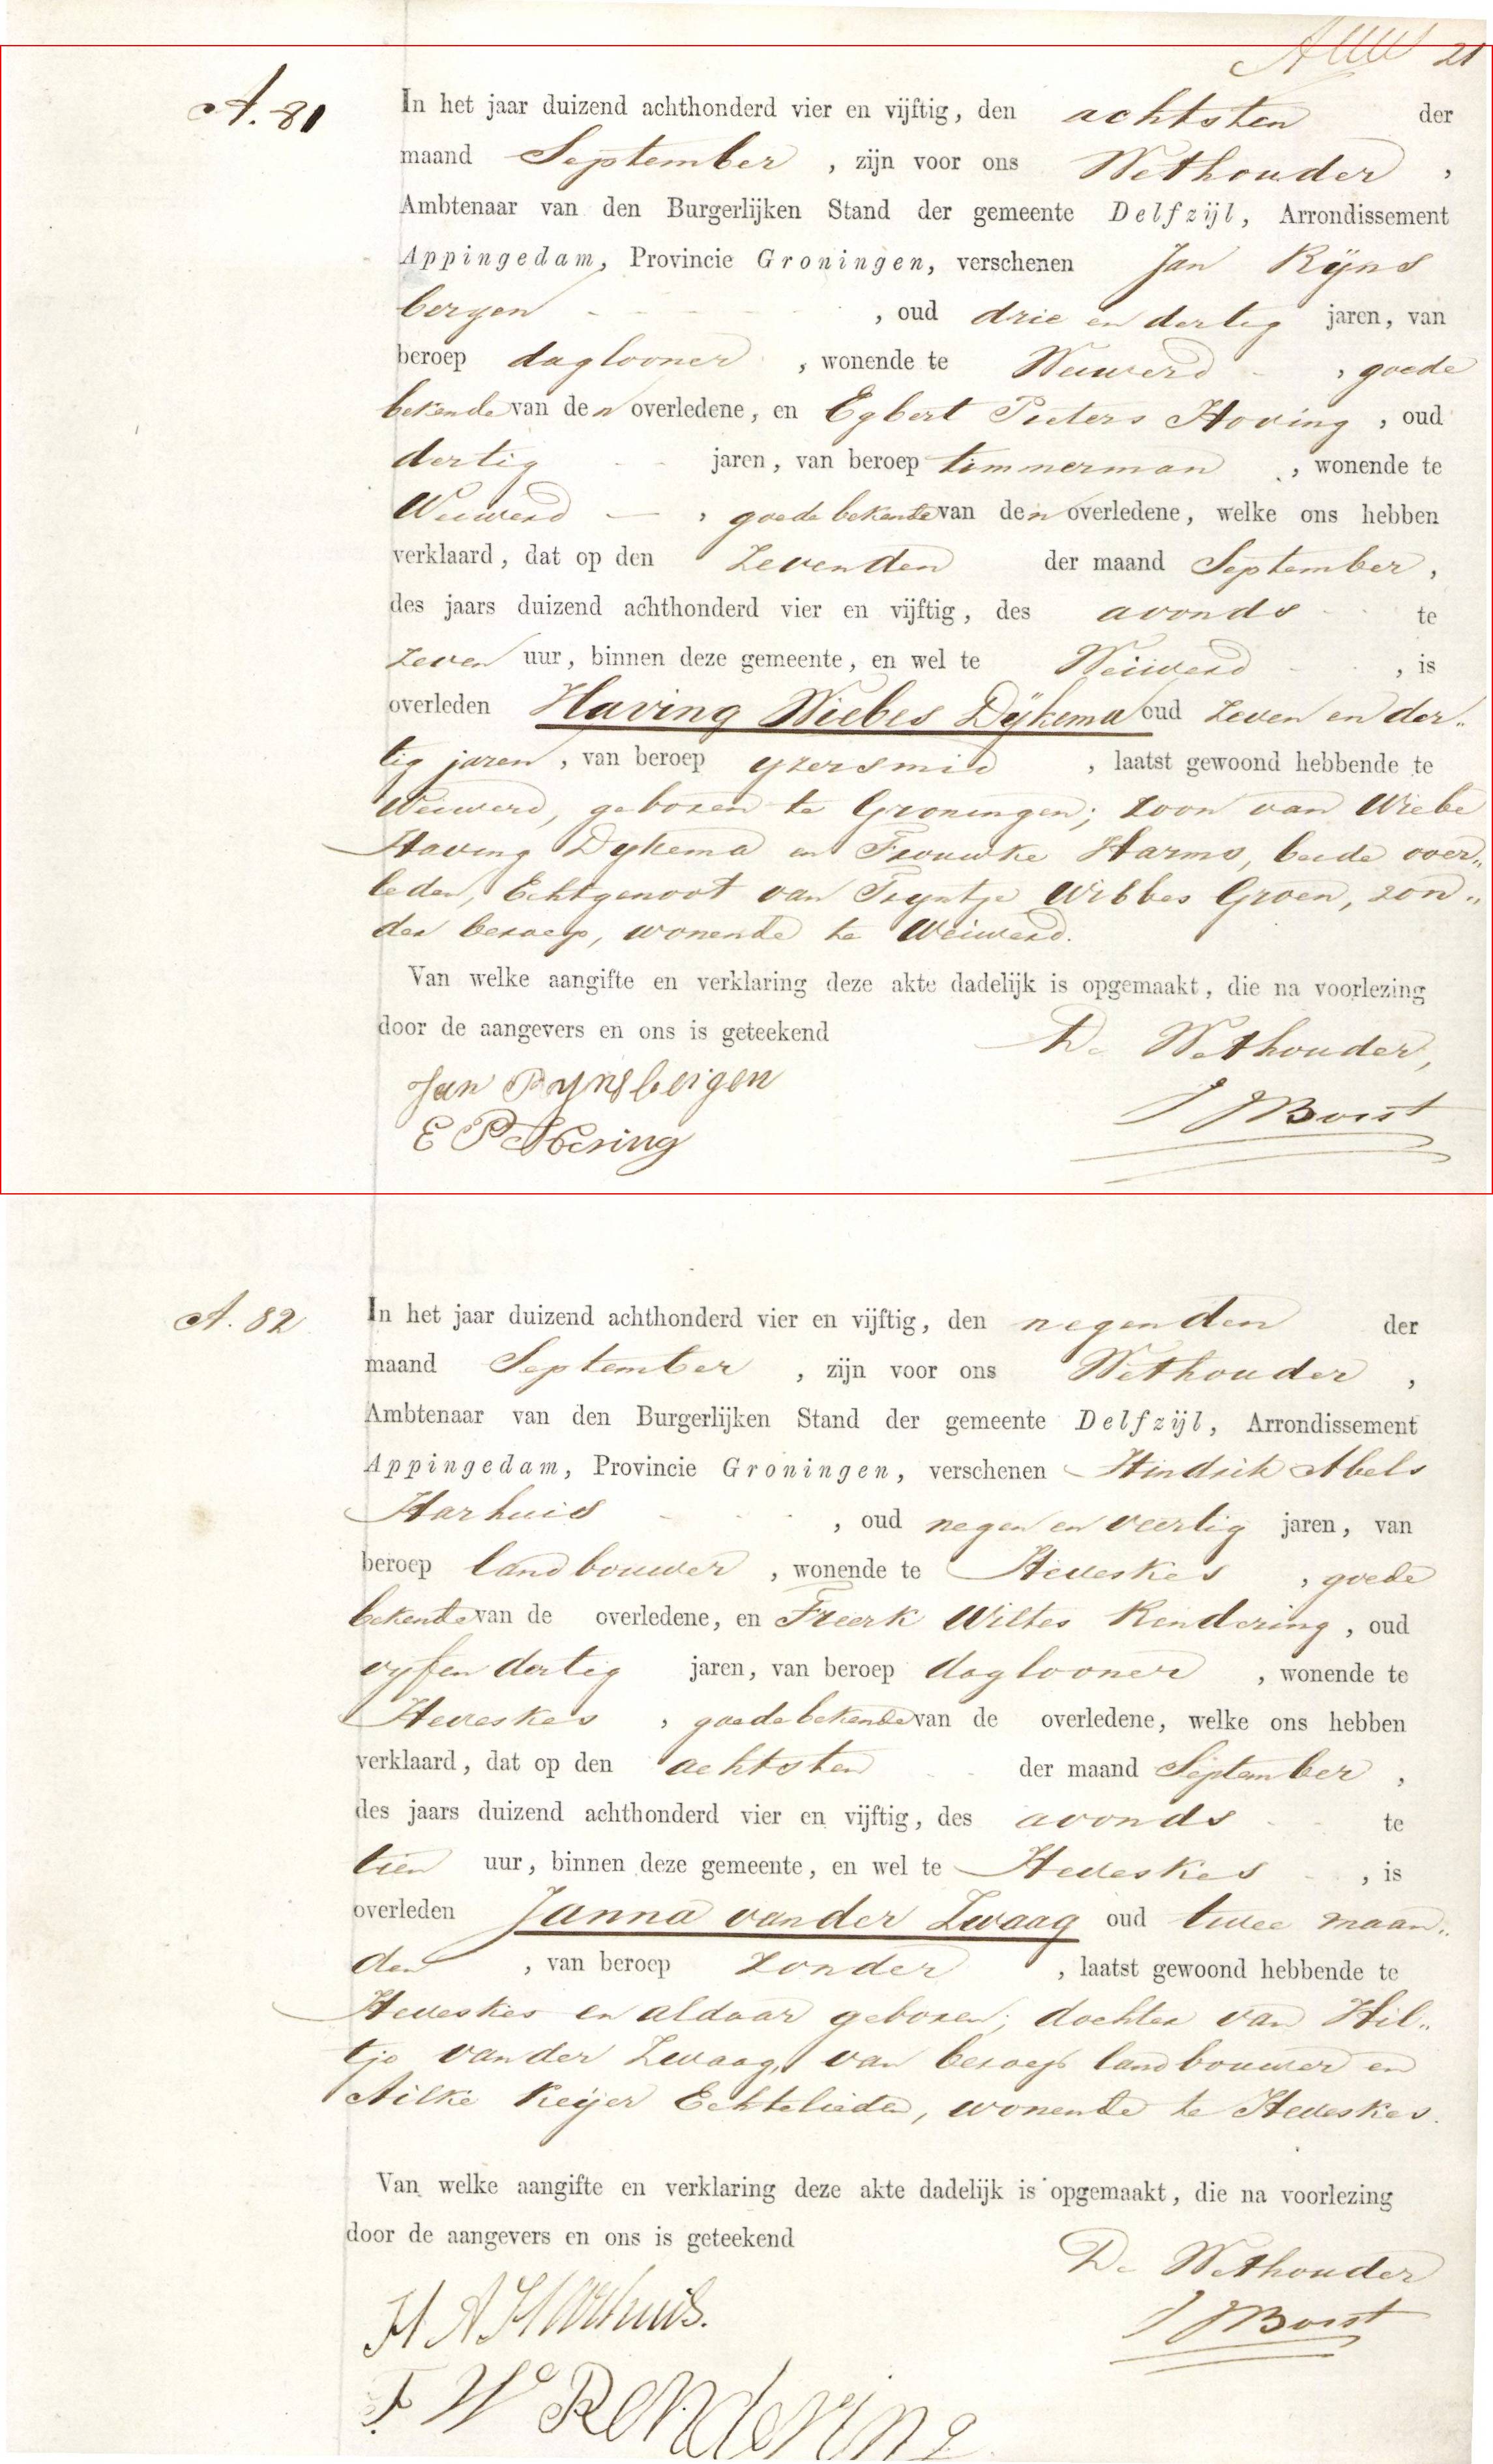 21
A. 81
In het jaar duizend achthonderd vier en vijftig, den achtsten der
maand September, zijn voor ons Wethouder,
Ambtenaar van den Burgerlijken Stand der gemeente Delfzijl, Arrondissement
Appingedam, Provincie Groningen, verschenen Jan Rÿns
bergen, oud drie en dertig jaren, van
beroep daglooner, wonende te Weiwerd, goede
bekende van den overledene, en Egbert Pieters Hoving, oud
dertig jaren, van beroep timmerman, wonende te
Weiwerd, goede bekende van den overledene, welke ons hebben
verklaard, dat op den zevenden der maand September,
des jaars duizend achthonderd vier en vijftig, des avonds te
zeven uur, binnen deze gemeente, en wel te Weiwerd, is
overleden Having Wiebes Dÿkema oud zeven en der„
tig jaren, van beroep yzersmid, laatst gewoond hebbende te
Weiwerd, geboren te Groningen; zoon van Wiebe
Having Dykema en Frouwke Harms, beide over„
leden, Echtgenoot van Tryntje Wibbes Groen, zon„
der beroep, wonende te Weiwerd.
Van welke aangifte en verklaring deze akte dadelijk is opgemaakt, die na voorlezing
door de aangevers en ons is geteekend De Wethouder,
Jan Rynsbergen
J J Borst
E P Hoving
A. 82
In het jaar duizend achthonderd vier en vijftig, den negenden der
maand September, zijn voor ons Wethouder,
Ambtenaar van den Burgerlijken Stand der gemeente Delfzijl, Arrondissement
Appingedam, Provincie Groningen, verschenen Hindrik Abels
Harhuis, oud negen en veertig jaren, van
beroep landbouwer, wonende te Heveskes, goede
bekende van de overledene, en Freerk Wiltes Rendering, oud
vyf en dertig jaren, van beroep daglooner, wonende te
Heveskes, goede bekende van de overledene, welke ons hebben
verklaard, dat op den achtsten der maand September,
des jaars duizend achthonderd vier en vijftig, des avonds te
tien uur, binnen deze gemeente, en wel te Heveskes, is
overleden Janna van der Zwaag oud twee maan„
den, van beroep zonder, laatst gewoond hebbende te
Heveskes en aldaar geboren; dochter van Hil„
tjo van der Zwaag, van beroep landbouwer en
Ailke Keijer Echtelieden, wonende te Heveskes.
Van welke aangifte en verklaring deze akte dadelijk is opgemaakt, die na voorlezing
door de aangevers en ons is geteekend De Wethouder
H A Harhuis.
J J Borst
F. W Rendering